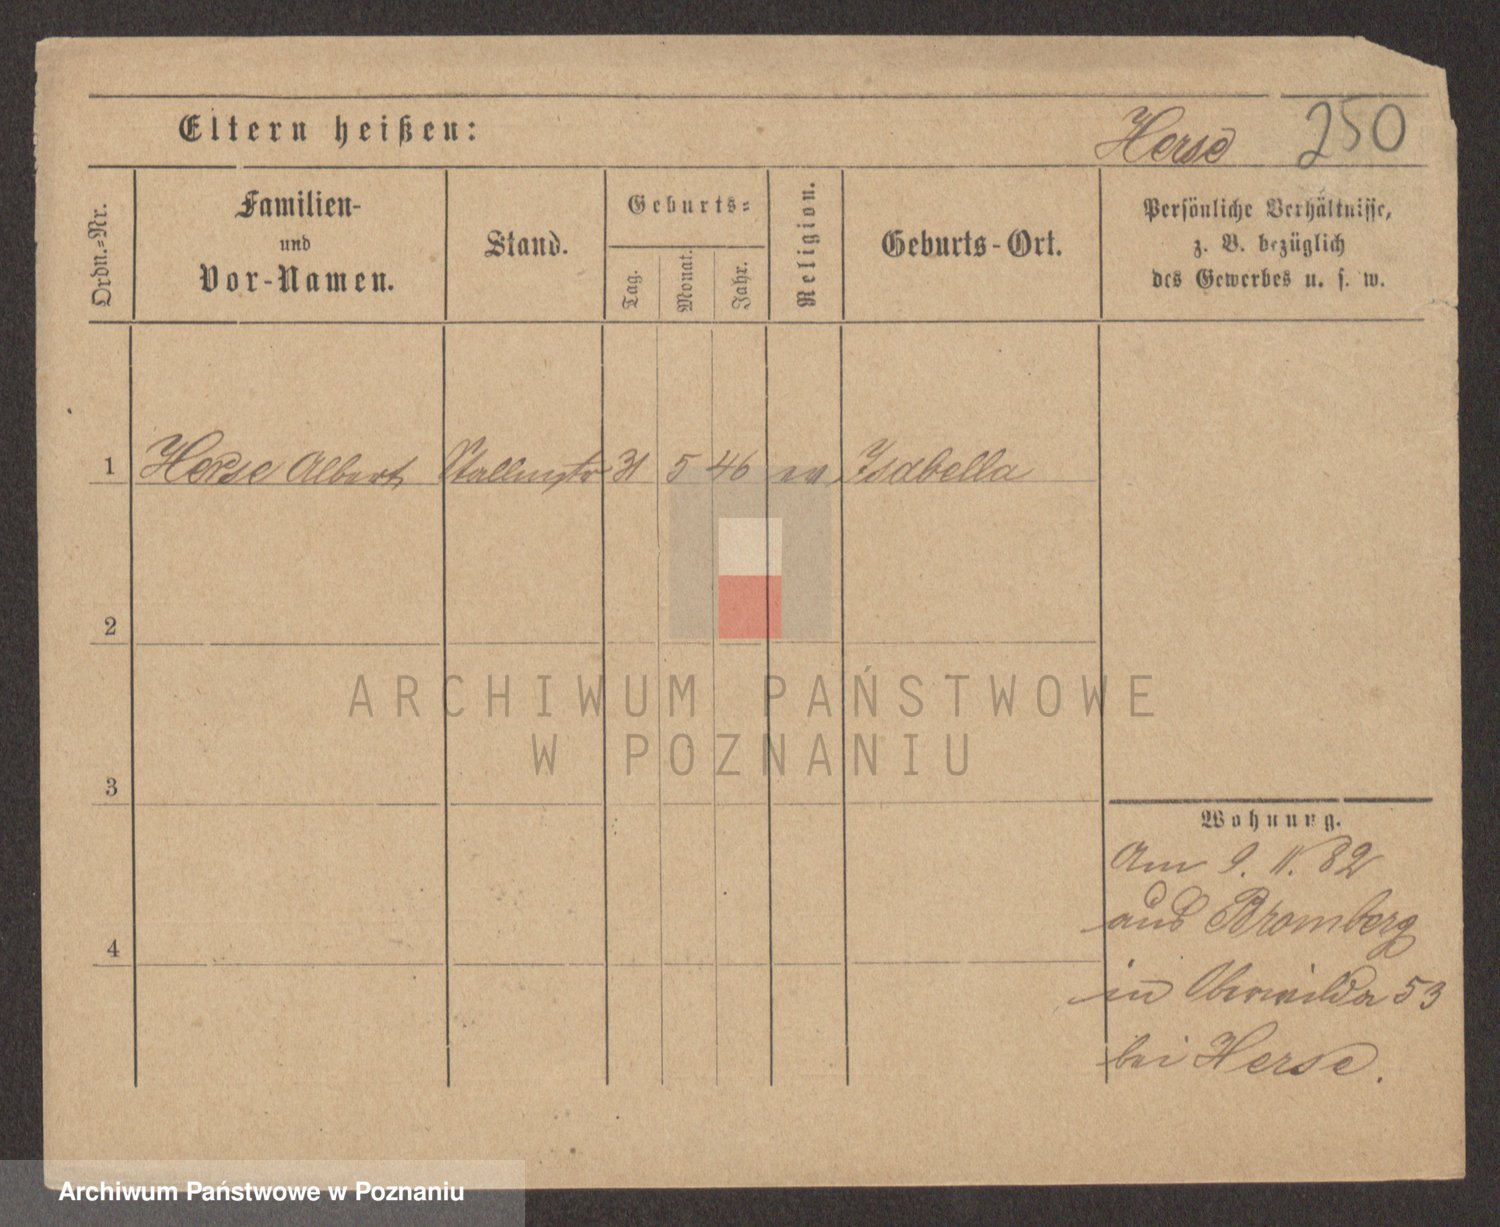 Eltern heißen:
Herse 250
Ordn.=Nr.
Familien-
und
Vor-Namen.
Stand.
Geburts=
Tag.
Monat.
Jahr.
Religion.
Geburts-Ort.
Persönliche Verhältnisse,
z. B. bezüglich
des Gewerbes u. s. w.
1 Herse Albert 31 5 46 ev. Isabella
2
3
4
Wohnung.
Am 9. 11. 82
aus Bromberg
in Oberwilda 53
bei Herse.
ARCHIWUM PAŃSTWOWE
W POZNANIU
Archiwum Państwowe w Poznaniu